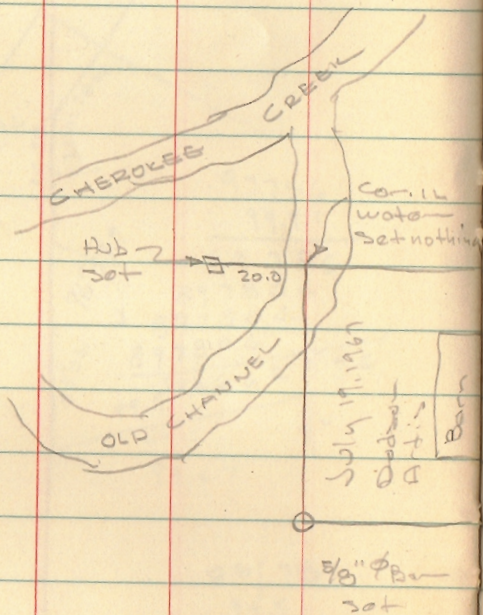 CHEROKEE CREEK
Cor. in
water
set nothing
Hub
set
20.0
OLD CHANNEL
July 19, 1967
Barn
5/8" Ø Bar
set